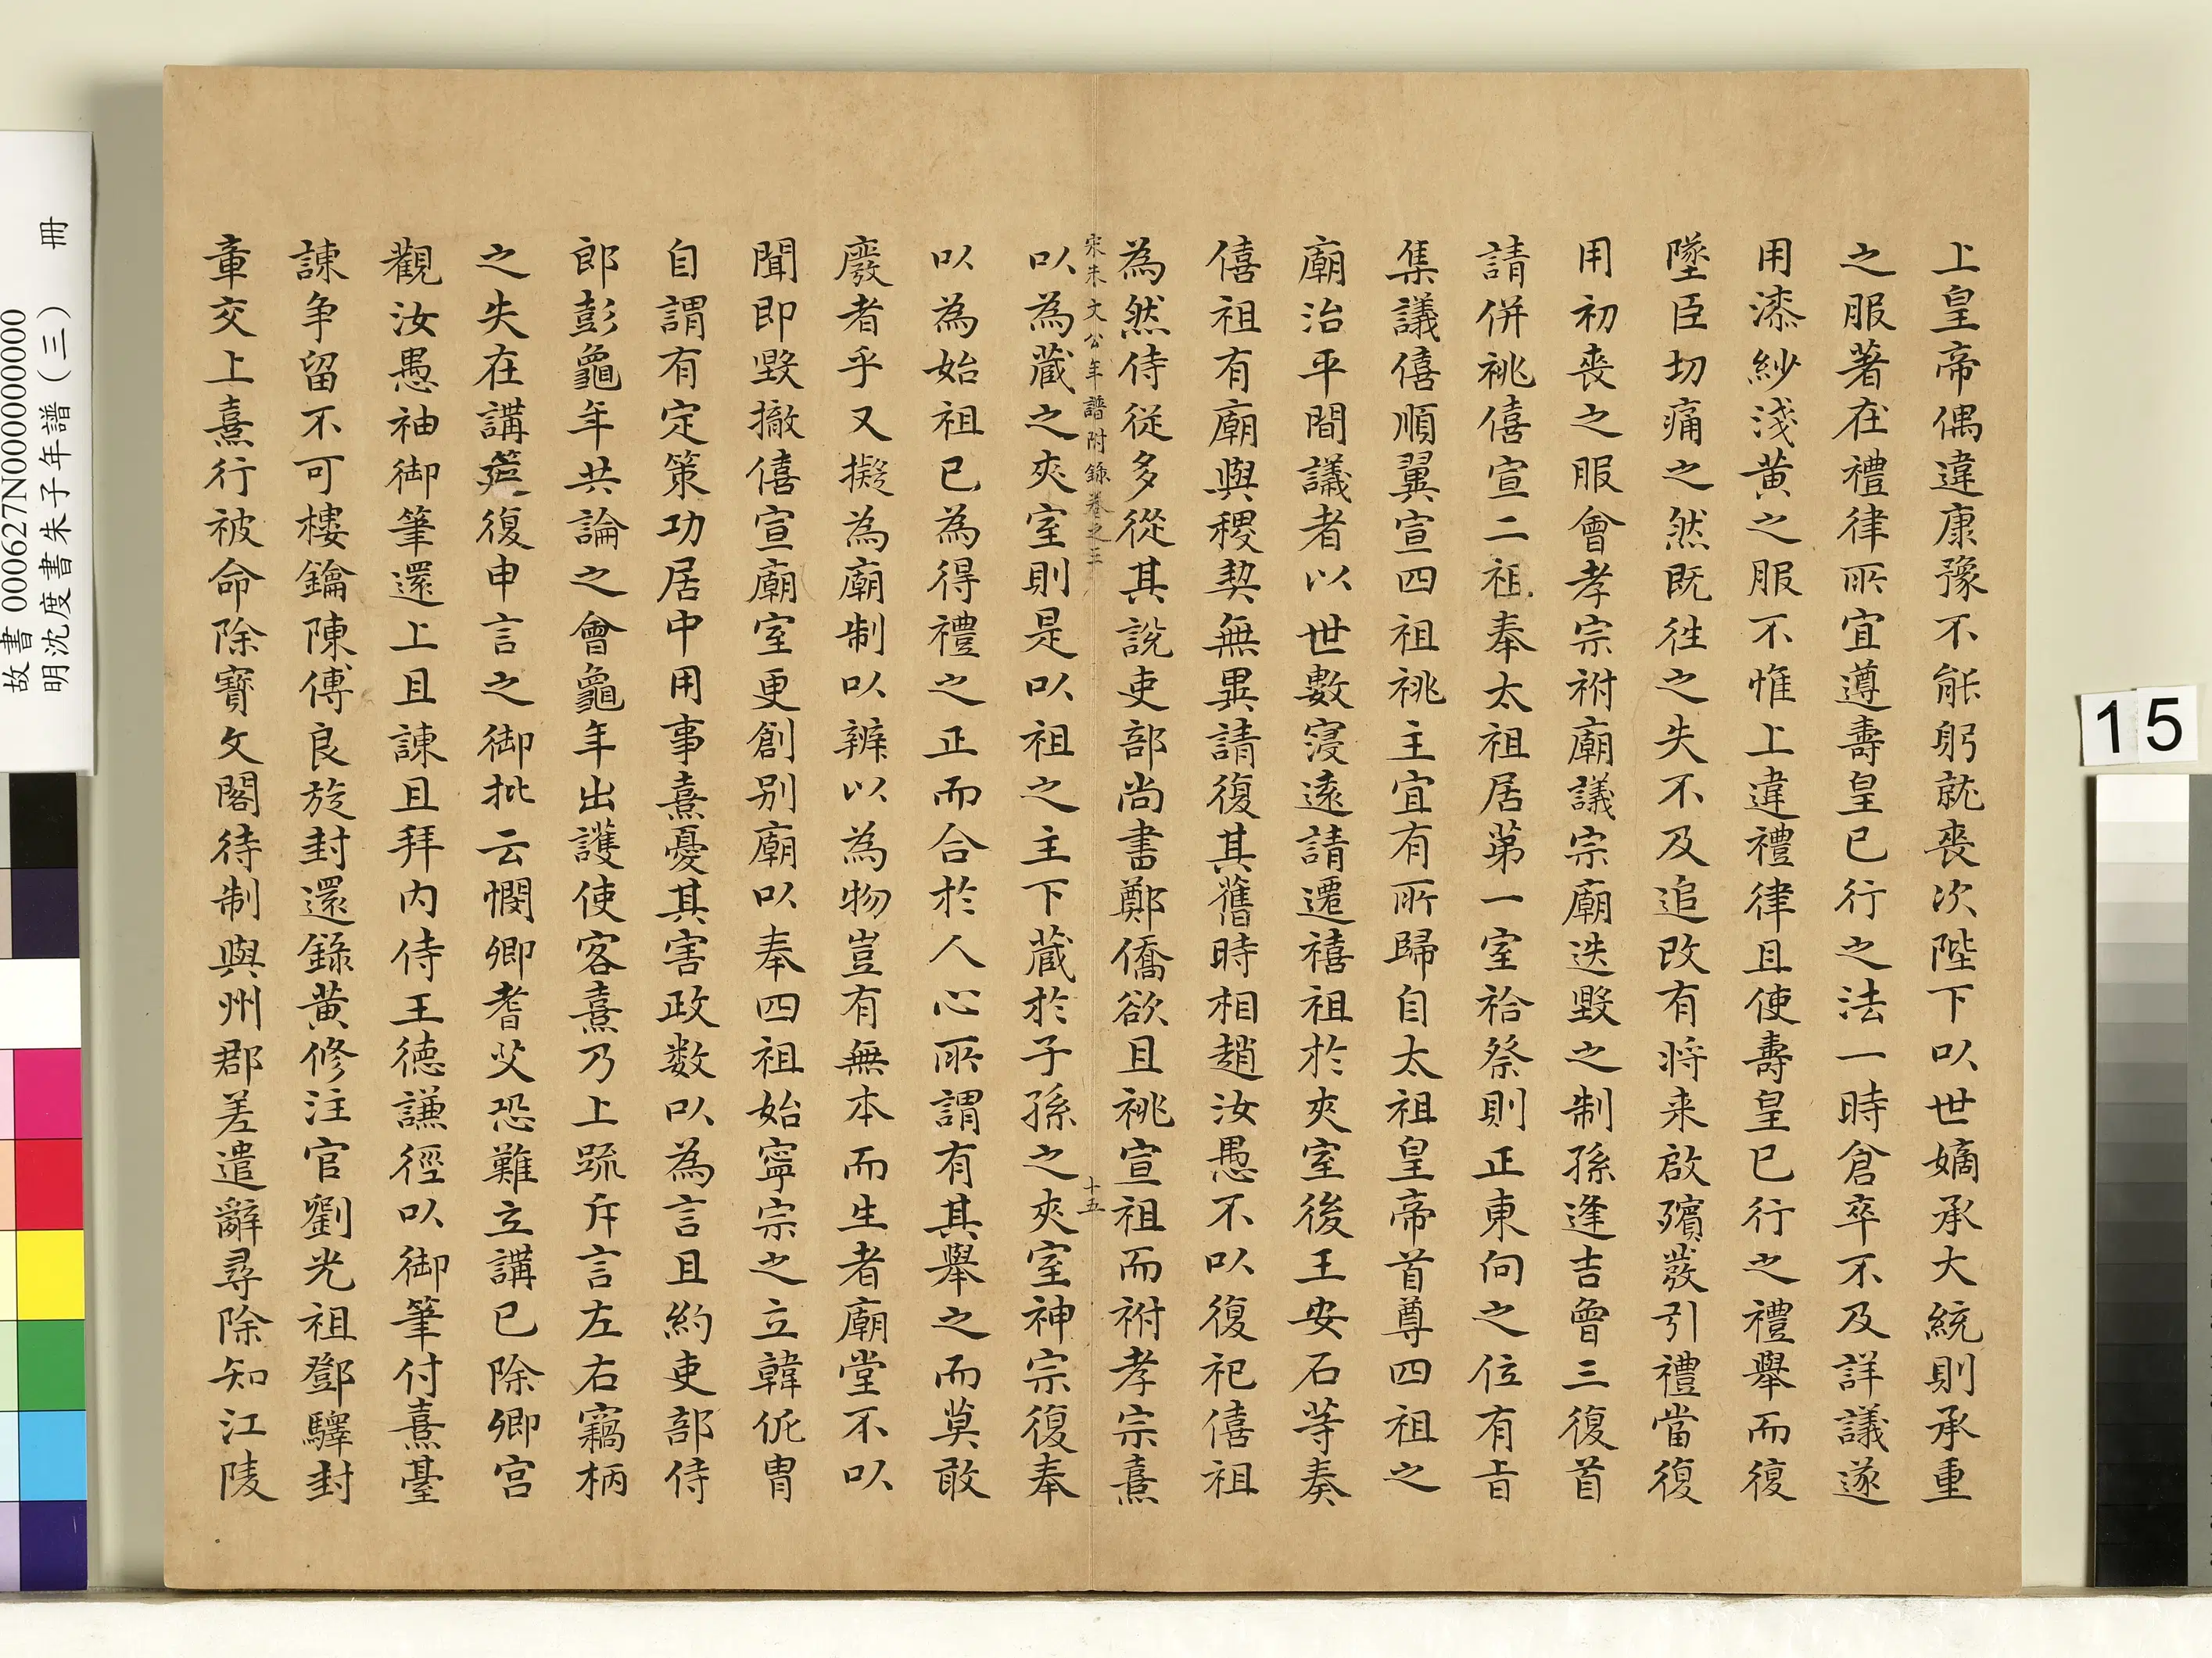 上皇帝偶違康豫不能躬就喪次陛下以世嫡承大統則承重
之服著在禮律所宜遵壽皇已行之法一時倉卒不及詳議遂
用漆紗淺黃之服不惟上違禮律且使壽皇已行之禮舉而復
墜臣切痛之然既徃之失不及追改有将来啟殯發引禮當復
用初喪之服會孝宗祔廟議宗廟迭毀之制孫逢吉曾三復首
請併祧僖宣二祖奉太祖居第一室祫祭則正東向之位有旨
集議僖順翼宣四祖祧主宜有所歸自太祖皇帝首尊四祖之
廟治平間議者以世數寖遠請遷禧祖於夾室後王安石等奏
僖祖有廟與稷契無異請復其舊時相趙汝愚不以復祀僖祖
為然侍從多從其說吏部尚書鄭僑欲且祧宣祖而祔孝宗熹
宋朱文公年譜附錄卷之三
十五
以為藏之夾室則是以祖之主下藏於子孫之夾室神宗復奉
以為始祖已為得禮之正而合於人心所謂有其舉之而莫敢
廢者乎又擬為廟制以辨以為物豈有無本而生者廟堂不以
聞即毀撤僖宣廟室更創别廟以奉四祖始寧宗之立韓侂胄
自謂有定策功居中用事熹憂其害政数以為言且約吏部侍
郎彭龜年共論之會龜年出護使客熹乃上疏斥言左右竊柄
之失在講筵復申言之御批云憫卿耆艾恐難立講已除卿宫
觀汝愚袖御筆還上且諫且拜内侍王德謙徑以御筆付熹臺
諫争留不可樓鑰陳傅良旋封還錄黃修注官劉光祖鄧驛封
章交上熹行被命除寶文閣待制與州郡差遣辭尋除知江陵
故書 000627N000000000
明沈度書朱子年譜(三) 冊
15